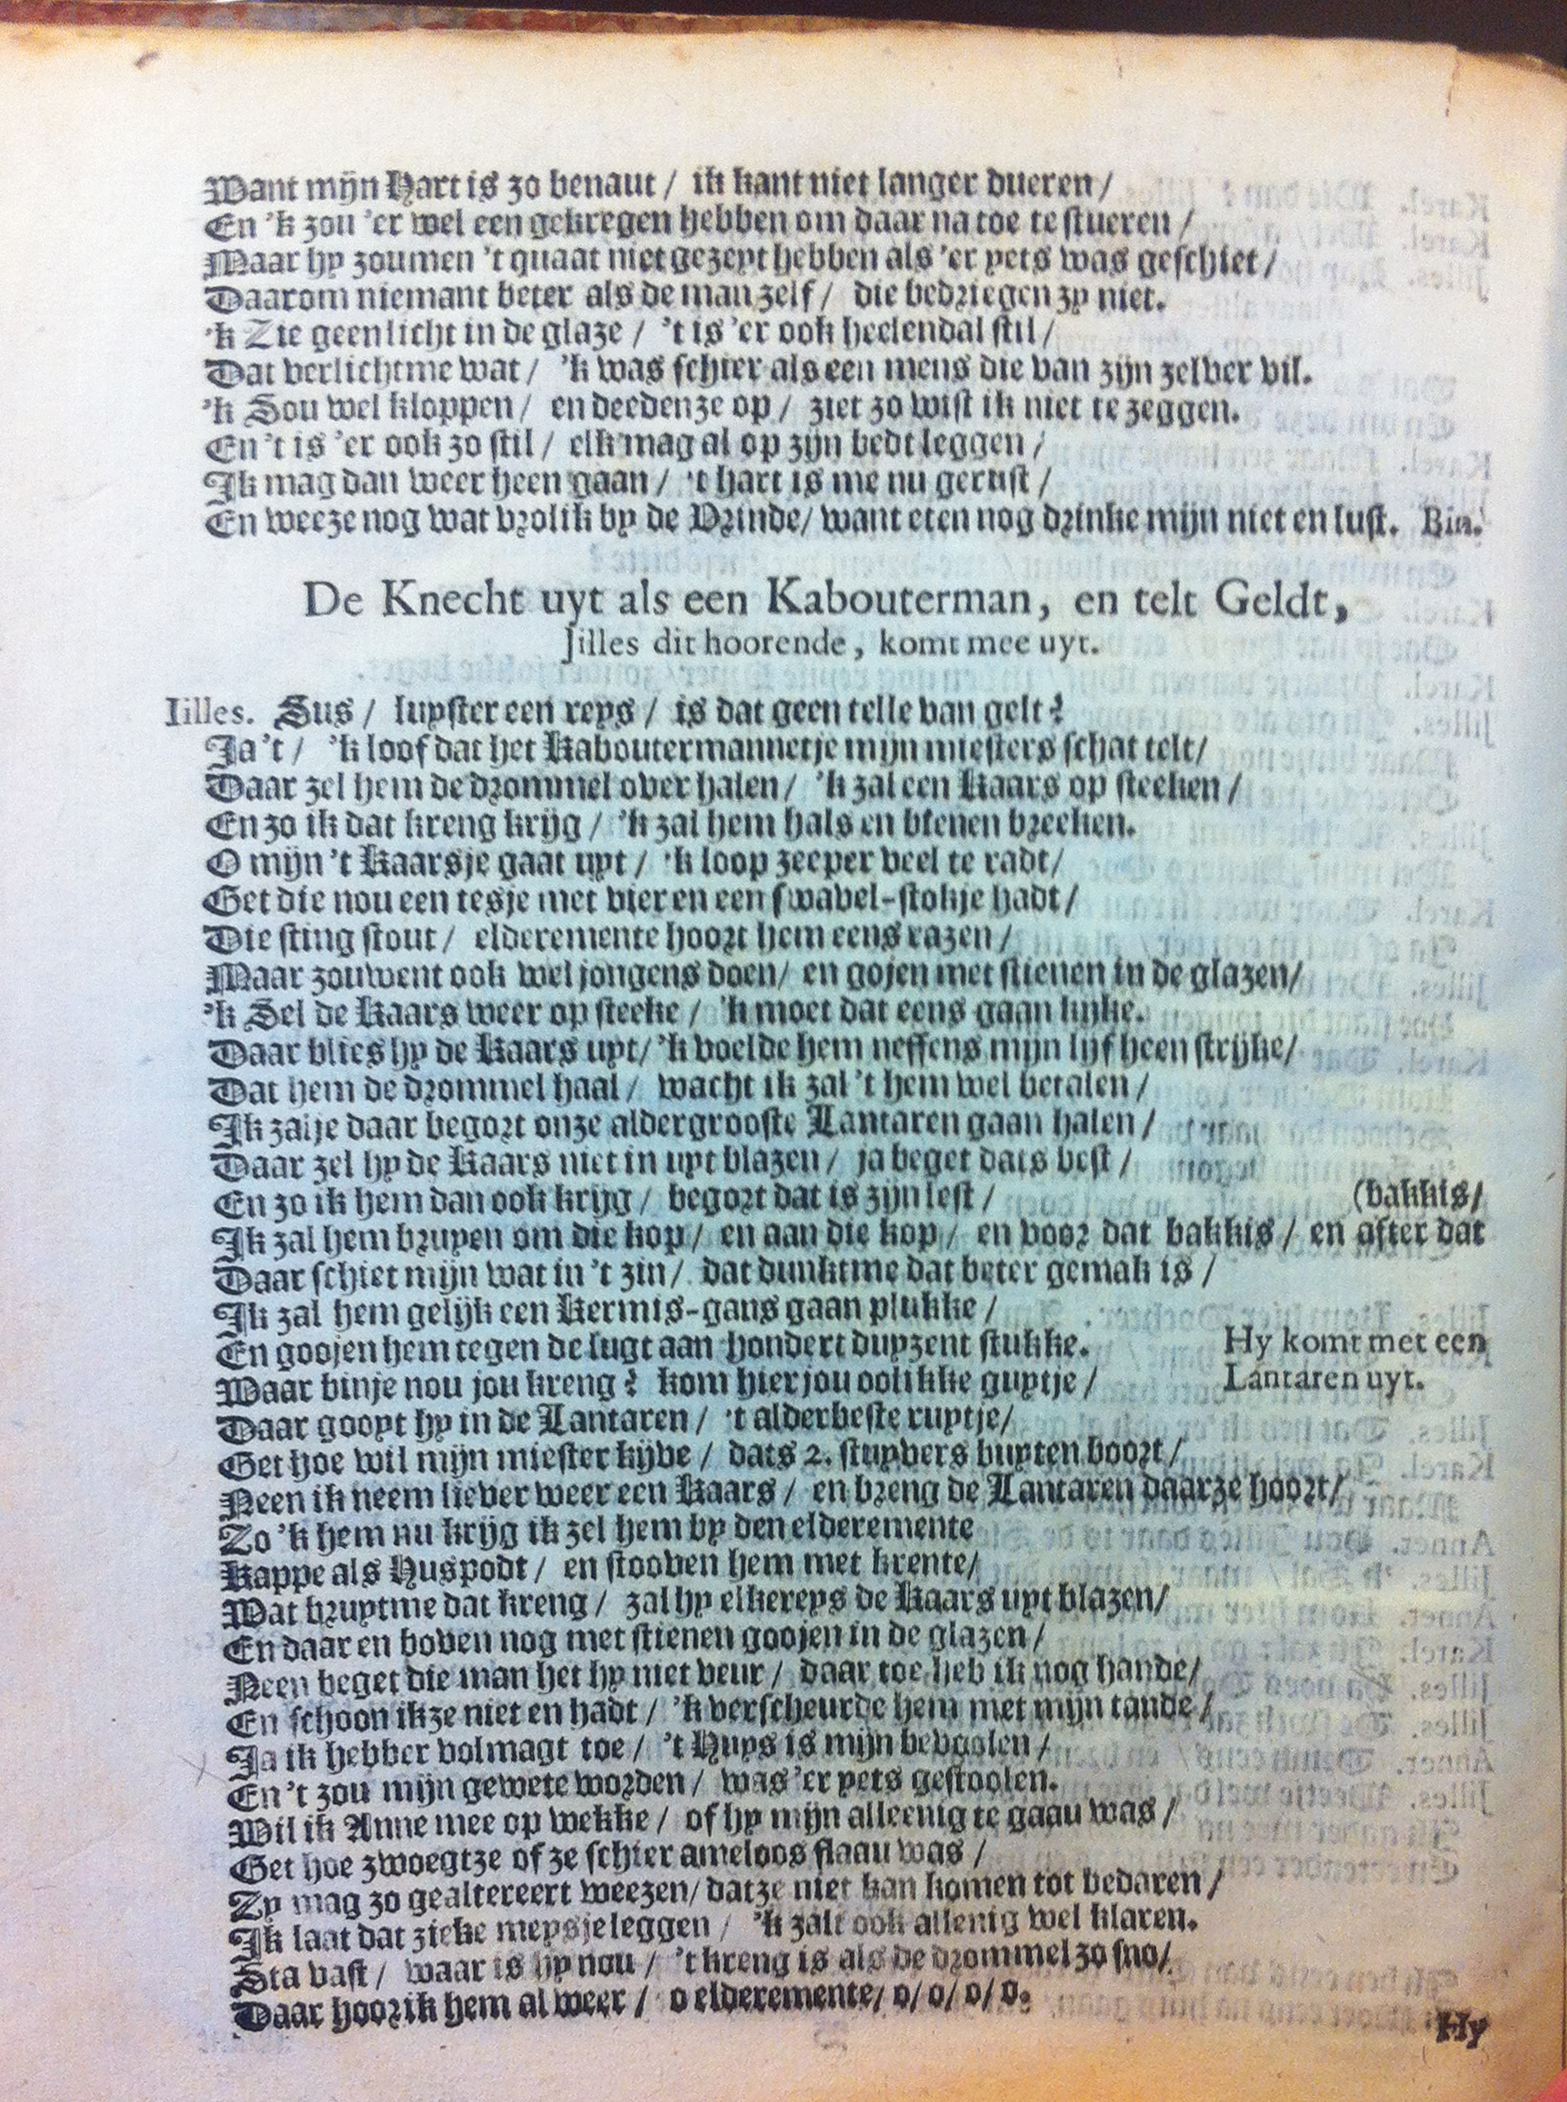 Want mijn Hart is zo benaut / ik kant niet langer dueren /
En 'k zou 'er wel een gekregen hebben om daar na toe te stueren /
Maar hy zoumen 't quaat niet gezeyt hebben als 'er yets was geschiet /
Daarom niemant beter als de man zelf / die bedriegen zy niet.
'k Zie geen licht in de glaze / 't is 'er ook heelendal stil /
Dat verlichtme wat / 'k was schier als een mens die van zijn zelver vil.
'k Sou wel kloppen / en deedenze op / ziet zo wist ik niet te zeggen.
En 't is 'er ook zo stil / elk mag al op zijn bedt leggen /
Ik mag dan weer heen gaan / 't hart is me nu gerust /
En weeze nog wat vrolik by de Vrinde / want eten nog drinke mijn niet en lust. Bin.
De Knecht uyt als een Kabouterman, en telt Geldt,
Jilles dit hoorende, komt mee uyt.
Iilles. Sus / luyster een reys / is dat geen telle van gelt?
Ja 't / 'k loof dat het Kaboutermannetje mijn miesters schat telt /
Daar zel hem de drommel over halen / 'k zal een Kaars op steeken /
En zo ik dat kreng krijg / 'k zal hem hals en bienen breeken.
O mijn 't Kaarsje gaat uyt / 'k loop zeeper veel te radt /
Get die nou een tesje met vier en een swavel-stokje hadt /
Die sting stout / elderemente hoort hem eens razen /
Maar zouwent ook wel jongens doen / en gojen met stienen in de glazen /
'k Sel de Kaars weer op steeke / 'k moet dat eens gaan kijke.
Daar blies hy de Kaars uyt / 'k voelde hem neffens mijn lijf heen strijke /
Dat hem de drommel haal / wacht ik zal 't hem wel betalen /
Ik zalje daar begort onze aldergrooste Lantaren gaan halen /
Daar zel hy de Kaars niet in uyt blazen / ja beget dats best /
En zo ik hem dan ook krijg / begort dat is zijn lest / (bakkis /
Ik zal hem bruyen om die kop / en aan die kop / en voor dat bakkis / en after dat
Daar schiet mijn wat in 't zin / dat dunktme dat beter gemak is /
Ik zal hem gelijk een Kermis-gans gaan plukke /
En goojen hem tegen de lugt aan hondert duyzent stukke. Hy komt met een
Waar binje nou jou kreng? kom hier jou oolikke guytje / Lantaren uyt.
Daar gooyt hy in de Lantaren / 't alderbeste ruytje /
Get hoe wil mijn miester kijve / dats 2. stuyvers buyten boort /
Neen ik neem liever weer een Kaars / en breng de Lantaren daarze hoort /
Zo 'k hem nu krijg ik zel hem by den elderemente
Kappe als Huspodt / en stooven hem met krente /
Wat bruytme dat kreng / zal hy elkereys de Kaars uyt blazen /
En daar en boven nog met stienen goojen in de glazen /
Neen beget die man het hy niet veur / daar toe heb ik nog hande /
En schoon ikze niet en hadt / 'k verscheurde hem met mijn tande /
Ja ik hebber volmagt toe / 't Huys is mijn bevoolen /
En 't zou mijn gewete worden / was 'er yets gestoolen.
Wil ik Anne mee op wekke / of hy mijn alleenig te gaau was /
Get hoe zwoegtze of ze schier ameloos flaau was /
Zy mag zo gealtereert weezen / datze niet kan komen tot bedaren /
Ik laat dat zieke meysje leggen / 'k zalt ook allenig wel klaren.
Sta vast / waar is hy nou / 't kreng is als de drommel zo sno /
Daar hoor ik hem al weer / o elderemente / o / o / o / o.
Hy